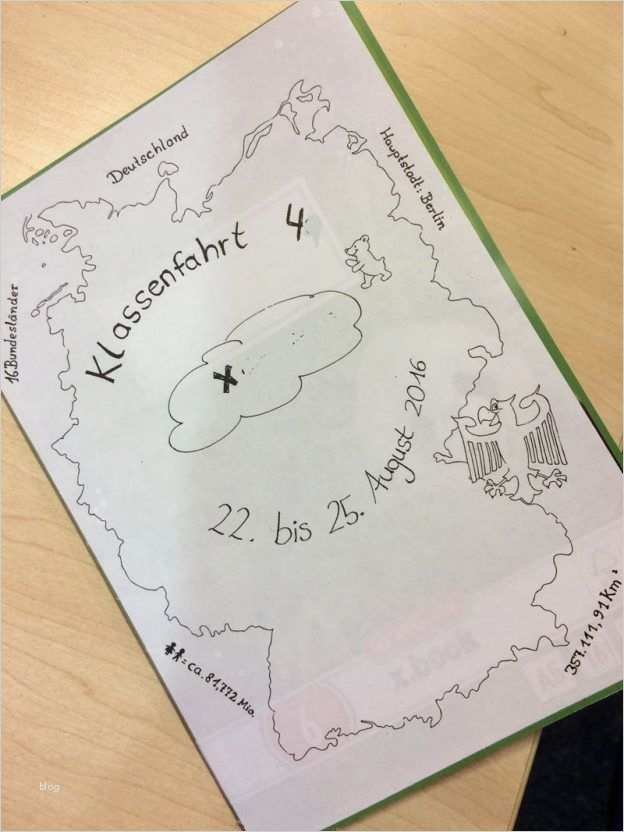 Deutschland
Hauptstadt: Berlin
16 Bundesländer
Klassenfahrt 4
x
22. bis 25. August 2016
= ca. 81,772 Mio.
357.111,91 Km²
blog